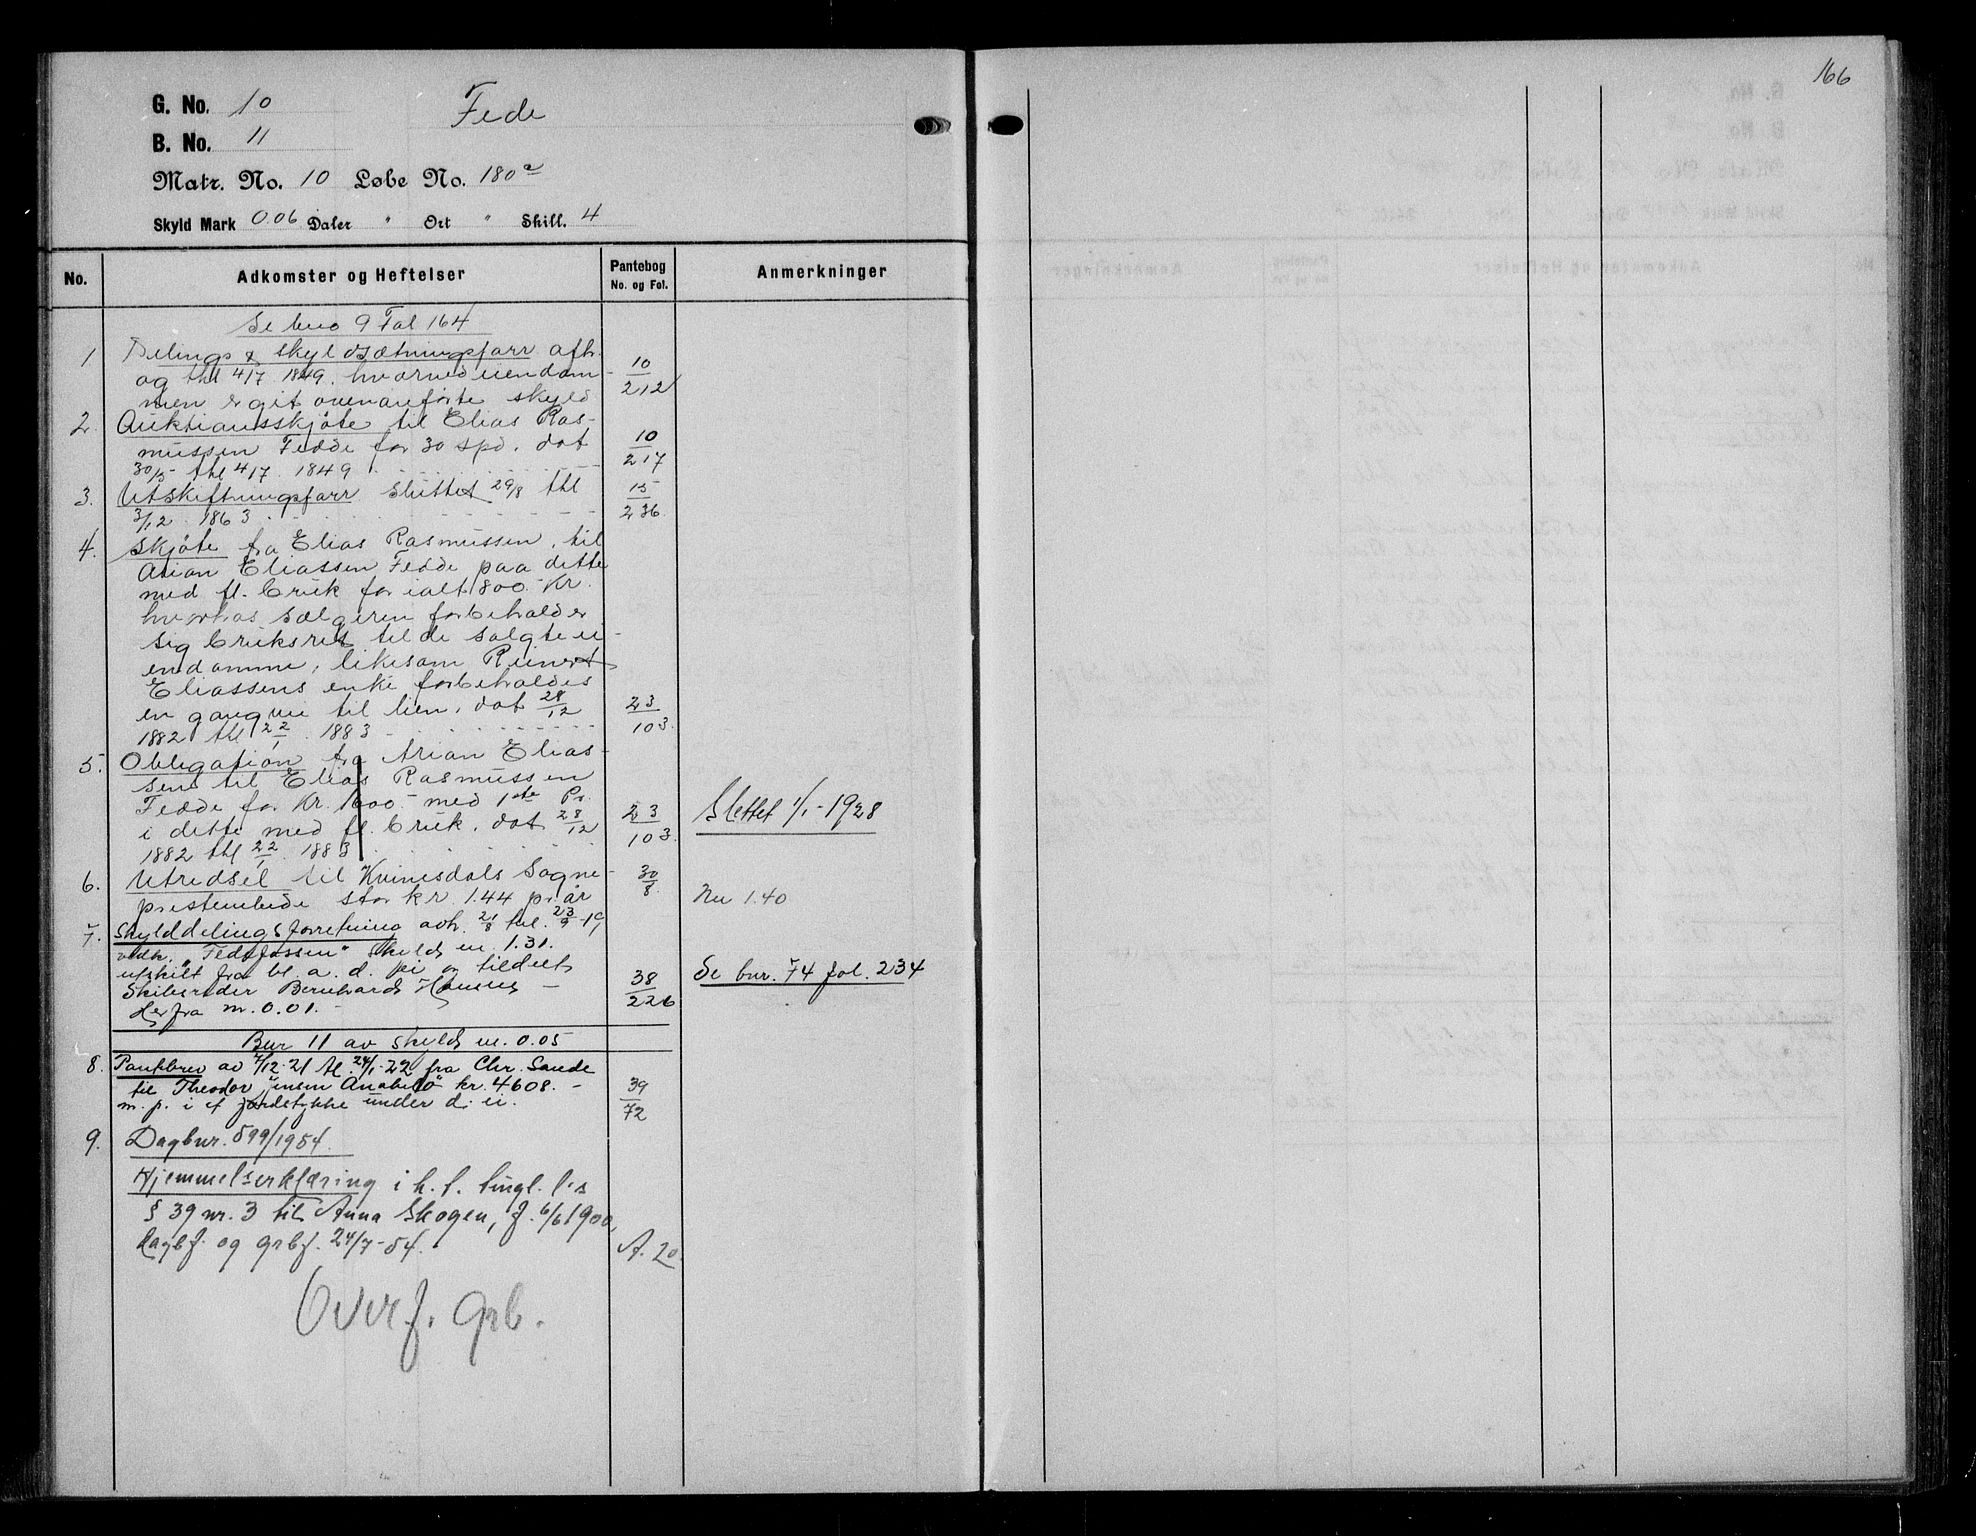 166
G. No. 10
Fede
B. No. 11
Matr. No. 10 Løbe No. 180 a
Skyld Mark 0.06 Daler " Ort " Skill. 4
No. Adkomster og Heftelser Pantebog No. og Fol. Anmerkninger
Se bno 9 Fol 164
1 Delings & skyldsætningsforr afh. 10
og thl 4/7 1849, hvorved eiendom- 212
men er git ovenanførte skyld
2. Auktionsskjøte til Elias Ras-
mussen Fedde for 30 spd. dat 10
30/5 thl 4/7 1849 217
3. Utskiftningsforr sluttet 29/8 thl 15
3/12 1863 236
4. Skjøte fra Elias Rasmussen, til
Arian Eliassen Fedde paa dette
med fl. bruk for ialt 800 Kr.
hvorhos sælgeren forbeholder
sig bruksret til de solgte ei-
endomme, likesom Reinert
Eliassens enke forbeholdes
en gangvei til lien, dat 28/12 23
1882 thl 22/1 1883 103.
5. Obligation fra Arian Elias-
sen til Elias Rasmussen
Fedde for Kr. 1600.- med 1ste Pr. 23 Slettet 1/1-1928
i dette med fl. bruk, dat 28/12 103.
1882 thl 22/1 1883
6. Utredsel til Kvinesdals Sogne- 30/8.
prestembede stor kr 1.44 pr år Nu 1.40
7. Skylddelingsforretning avh. 21/8 tnl. 23/9-19
vedk. "Fedefossen" skyld m. 1.31.
utskilt fra bl. a. d. ei og tildelt 38 Se bnr. 74 fol. 234
Skibsreder Bernhard Hansen 226
Herfra m. 0.01.-
Bnr 11 av skyld m. 0.05
8. Pantbrev av 7/12-21 tl. 24/1-22 fra Chr. Sande
til Theodor Jensen Anabelø kr. 4608.- 39
m. p. i et jordstykke under d. ei. 72
9. Dagbnr. 599/1954.
Hjemmelserklæring i h. t. tingl. l's
§ 39 nr. 3 til Anna Skogen, f. 6/6 1900,
dagbf. og grbf. 24/7-54. A. 20.
Overf. grb.